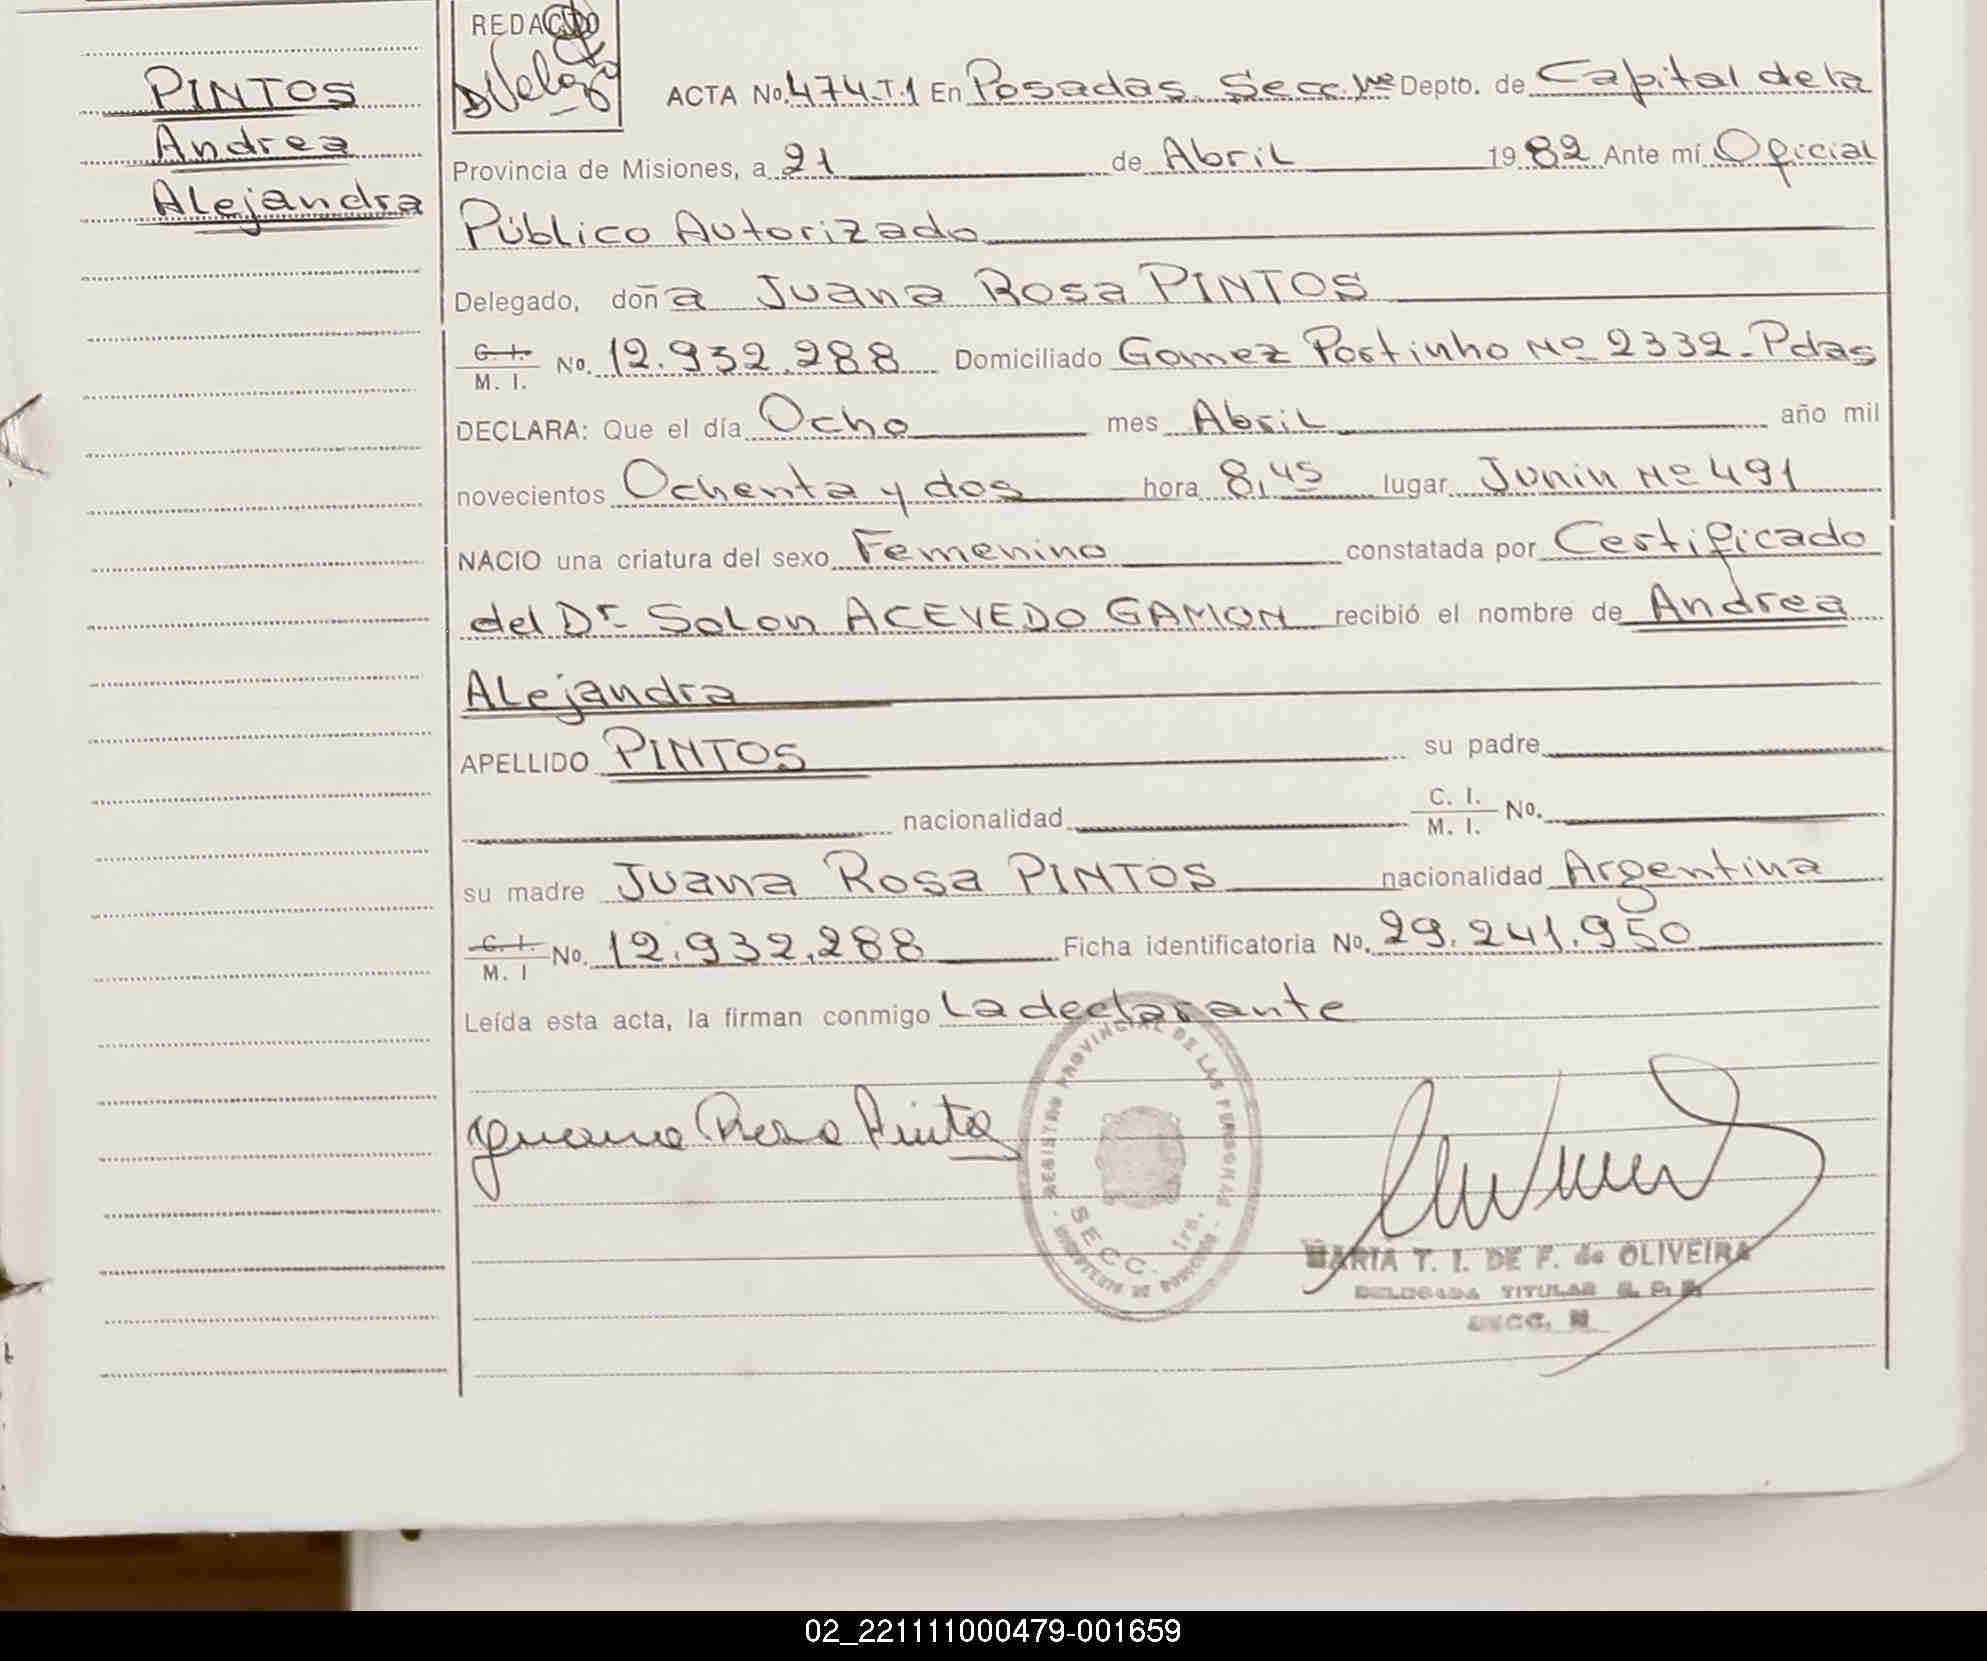 PINTOS
Andrea
Alejandra
REDACTO
ACTA No. 474.T.1 En Posadas Secc. 1ra Depto. de Capital de la
Provincia de Misiones, a 21 de Abril 1982 Ante mí Oficial
Público Autorizado
Delegado, doña Juana Rosa PINTOS
C. I. M. I. No. 12.932.288 Domiciliado Gomez Portinho Nº 2332 - Pdas
DECLARA: Que el día Ocho mes Abril año mil
novecientos Ochenta y dos hora 8,45 lugar Junin Nº 491
NACIO una criatura del sexo Femenino constatada por Certificado
del Dr. Solon ACEVEDO GAMON recibió el nombre de Andrea
Alejandra
APELLIDO PINTOS su padre
nacionalidad C. I. M. I. No.
su madre Juana Rosa PINTOS nacionalidad Argentina
C. I. M. I No. 12.932.288 Ficha identificatoria No. 29.241.950
Leída esta acta, la firman conmigo La declarante
Juana Rosa Pinto
REGISTRO PROVINCIAL DE LAS PERSONAS
SECC. 1ra.
MARIA T. I. DE F. de OLIVEIRA
DELEGADA TITULAR
SECC.
02_221111000479-001659